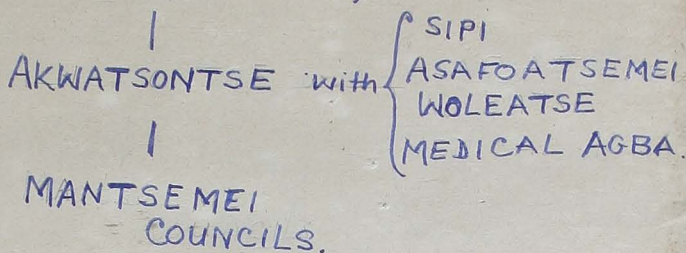 SIPI
AKWATSONTSE with ASAFOATSEMEI
WOLEATSE
MEDICAL AGBA.
MANTSEMEI
COUNCILS.